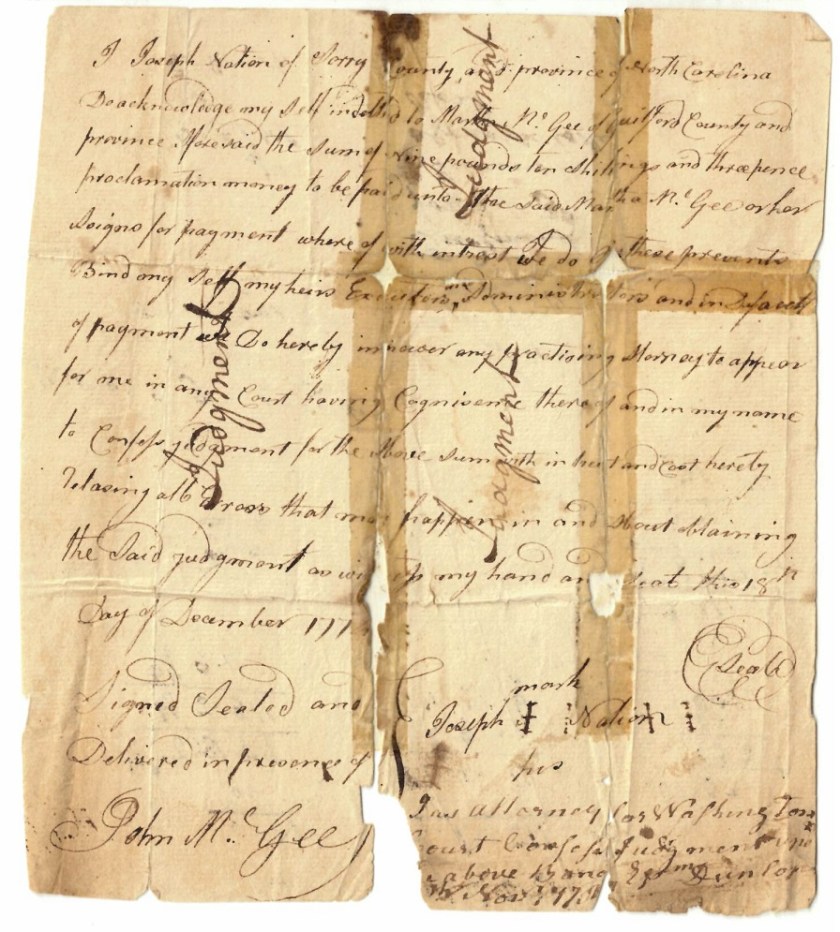 I Joseph Nation of Sorry County and province of North Carolina
Do acknowledge my Self indetted to Martha Mc Gee of Guilford County and
province Aforesaid the Sum of nine pounds ten Shilings and three pence
proclamation money to be paid unto the Said Martha Mc Gee or her
Asigns for payment where of with intrest We do these presents
Bind my Self my heirs Executors Administrators and in Defacult
of payment Do hereby impower any practising Atorney to appear
for me in any Court having Cognisence thereof and in my name
to Confess judgment for the Above Sum with and Cost hereby
Relasing all Errors that may happen in and About obtaining
the Said judgment as witness my hand and Seal this 18th
Day of December 177
Signed Sealed and
Delivered in presence of
John Mc Gee
Seal
mark
Joseph Nation
his
I as attorney for Washington
Court Confess Judgment
above Dunlop
Novr 177
Judgment
Judgment
Judgment